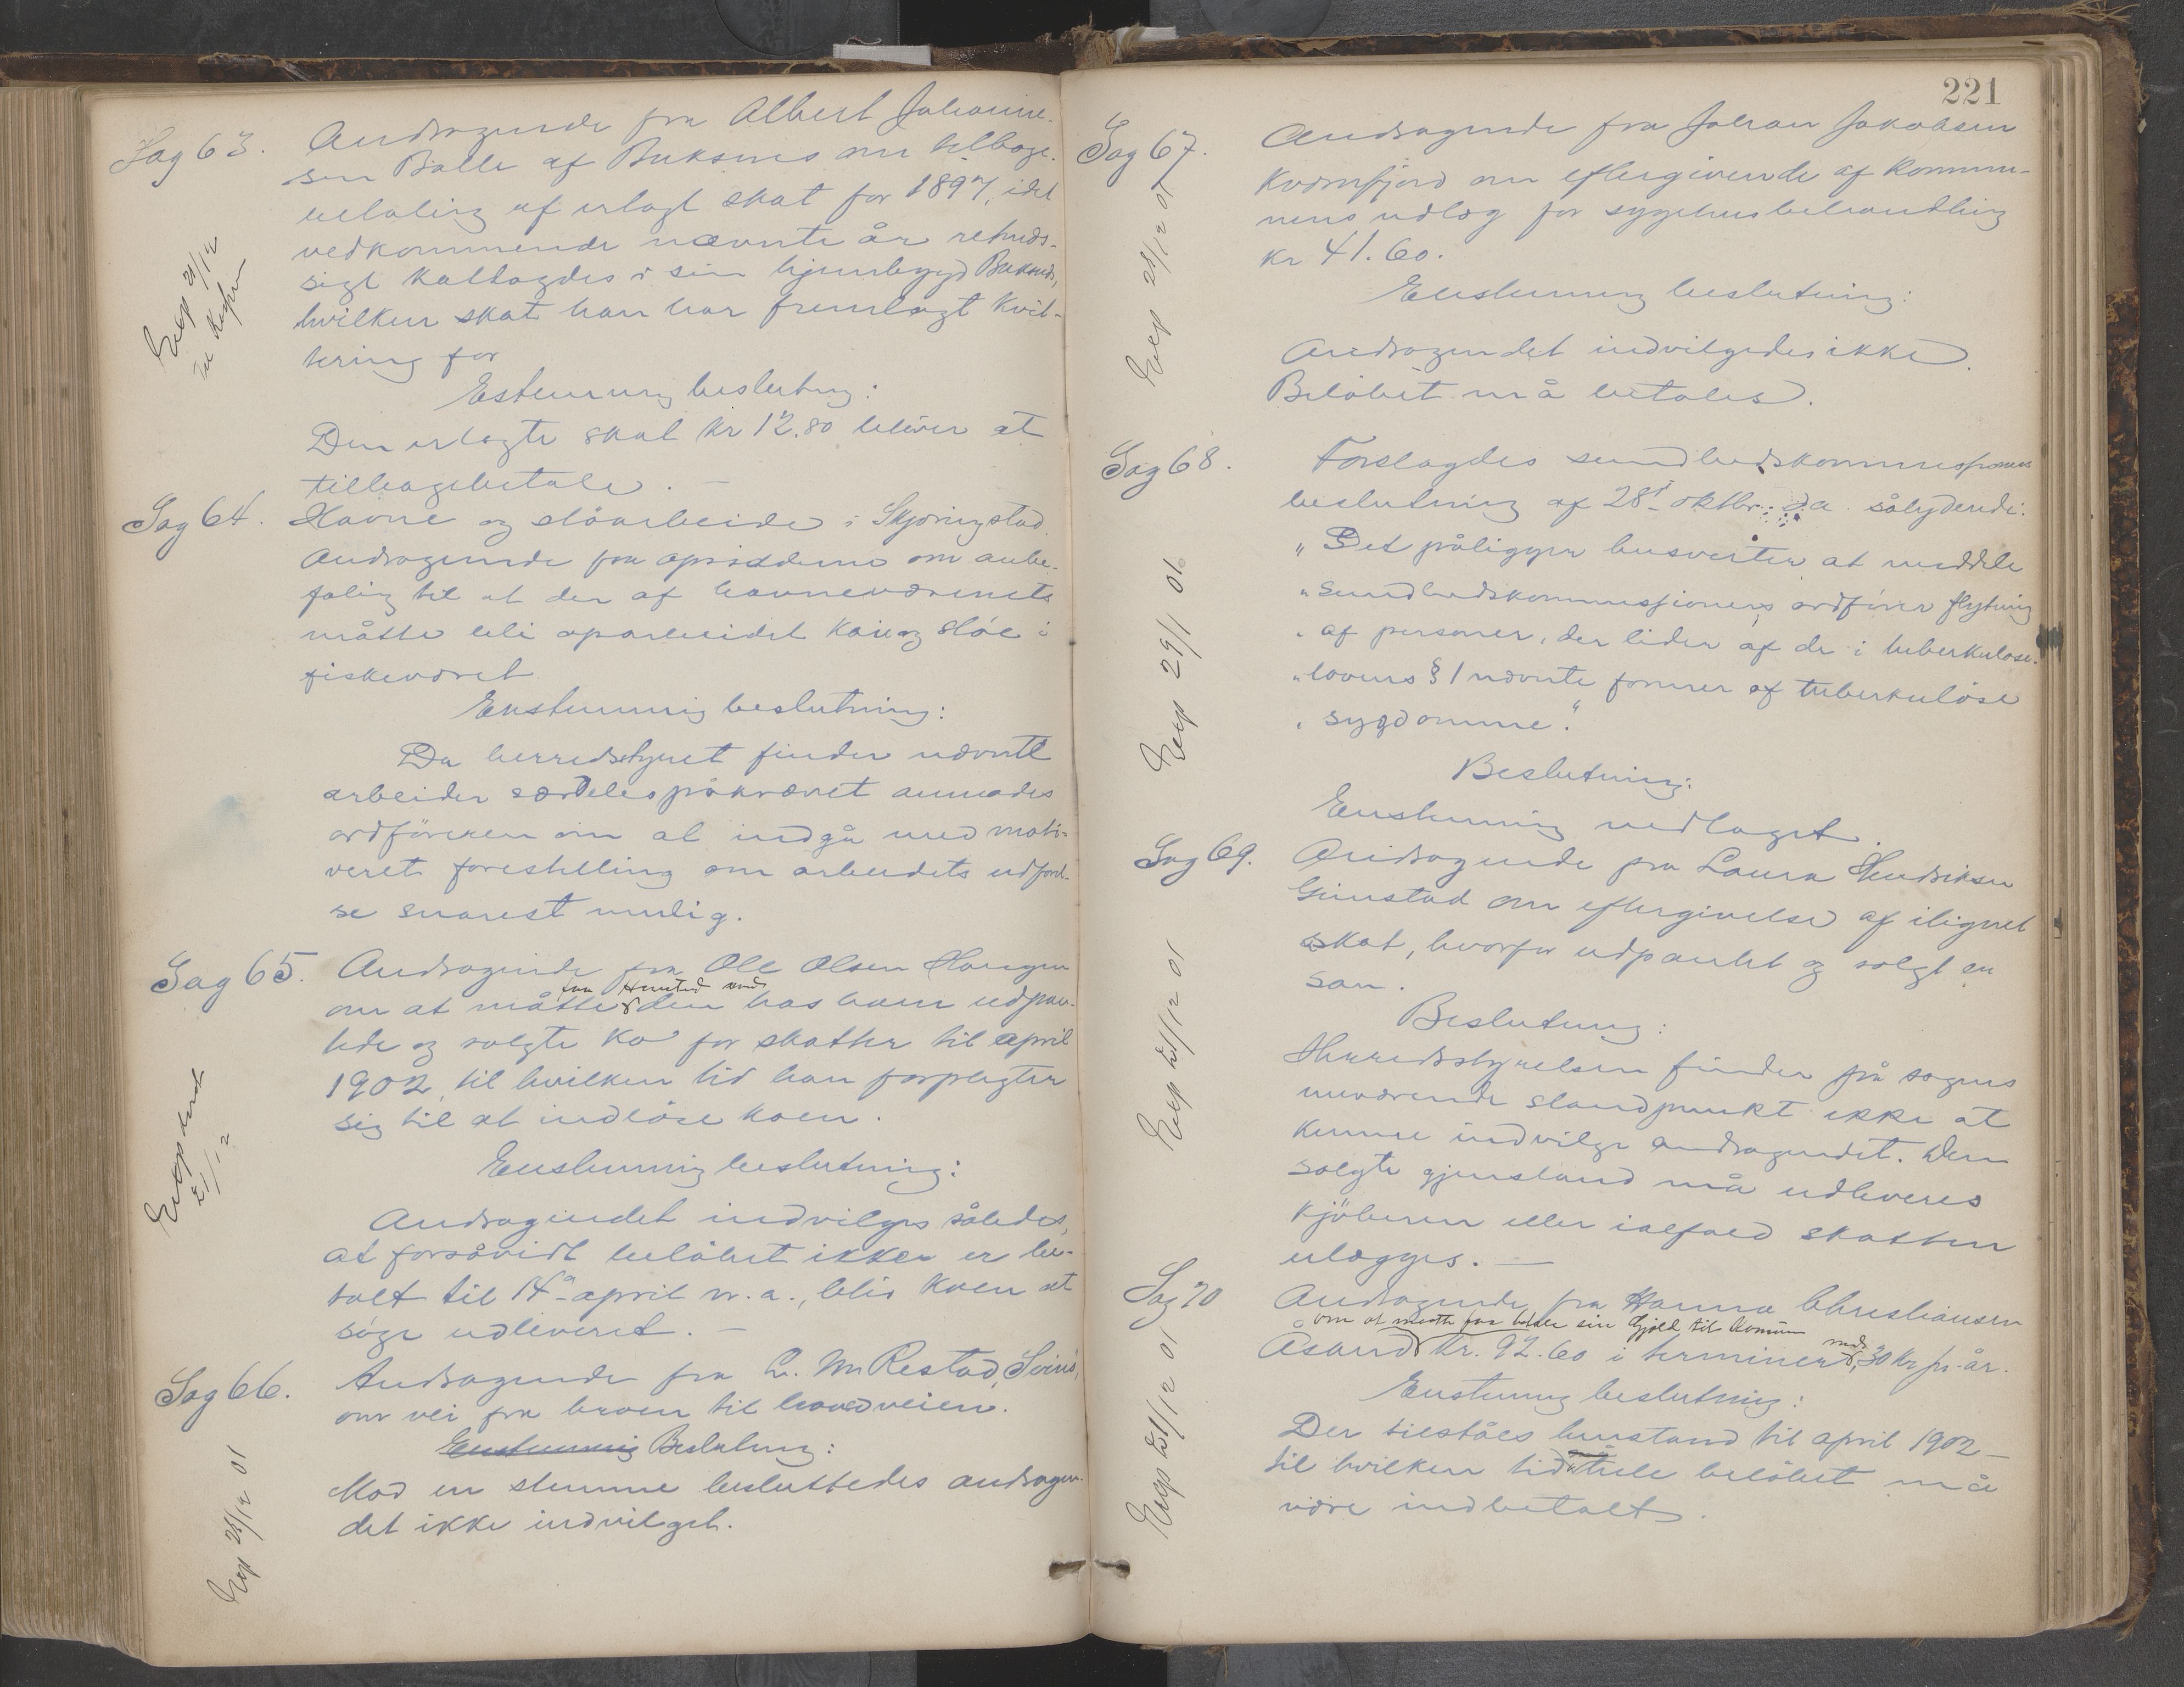 Sag 63. Andragende fra Albert Johanne-
sen Balle af Buksnes om tilbage-
betaling af erlagt skat for 1897, idet
vedkommende nævnte år retmæs-
sigt skatlagdes i sin hjembygd Buksnæs,
hvilken skat han har fremlagt kvit-
tering for
Exp 21/12
til Kasser
Enstemmig beslutning:
Den erlagte skat kr 12.80 bliver at
tilbagebetale. —
Sag 64. Havne og støarbeide i Skjæringstad.
Andragende fra opsidderne om anbe-
faling til at der af havnevæsenets
måtte bli oparbeidet kai og støe i
fiskeværet.
Enstemmig beslutning:
Da herredsstyret finder nævnte
arbeider særdeles påkrævet anmodes
ordføreren om at indgå med moti-
veret forestilling om arbeidets udførel-
se snarest mulig.
Sag 65. Andragende fra Ole Olsen Haugen
faa Henstad med
om at måtte den hos ham udpan-
tede og solgte ko for skatter til april
1902, til hvilken tid han forpligter
sig til at indløse koen.
Exp
21/12
Enstemmig beslutning:
Andragendet indvilges således,
at forsåvidt beløbet ikke er be-
talt til 14de april n. a., blir koen at
søge udleveret. —
Sag 66. Andragende fra L. M. Restad, Svinø,
om vei fra broen til hovedveien.
Enstemmig Beslutning:
Mod en stemme besluttedes andragen-
det ikke indvilget.
Exp 21/12 01
221
Sag 67. Andragende fra Johan Jakobsen
Kvæfjord om eftergivende af kommu-
nens udlæg for sygehusbehandling
kr 41.60.
Exp 21/12 01
Enstemmig beslutning:
Andragendet indvilgedes ikke.
Beløbet må betales.
Sag 68. Forelagdes sundhedskommissionens
beslutning af 28de oktbr. d.a. sålydende:
"Det påligger husverter at meddele
"sundhedskommissionens ordfører flytning
"af personer, der lider af de i tuberkulose-
"lovens § 1 nævnte former af tuberkuløse
"sygdomme."
Exp 29/1 01
Beslutning:
Enstemmig vedtaget.
Sag 69. Andragende fra Laura Hendriksen
Gimstad om eftergivelse af ilignet
skat, hvorfor udpantet og solgt en
sau.
Exp 21/12 01
Beslutning:
Herredsstyrelsen finder på sagens
nuværende standpunkt ikke at
kunne indvilge andragendet. Den
solgte gjenstand må udleveres
kjøberen eller ialfald skatten
erlægges. —
Sag 70 Andragende fra Hanna Christiansen
om at maatte faa betale sin Gjæld til Komunen
Åsand kr. 92.60 i terminer med 30 kr pr. år.
Exp 21/12 01
Enstemmig beslutning:
Der tilståes henstand til april 1902
til hvilken tid hele beløbet må
være indbetalt.